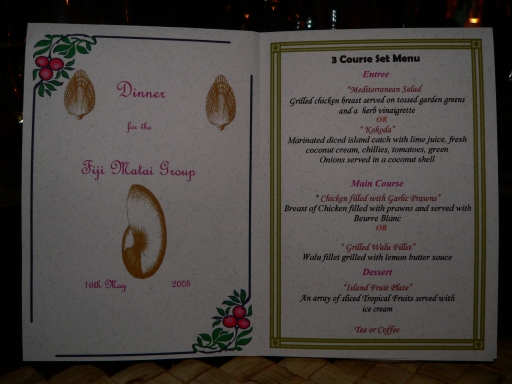 Dinner
for the
Fiji Matai Group
16th May 2005
3 Course Set Menu
Entree
"Mediterranean Salad
Grilled chicken breast served on tossed garden greens
and a herb vinaigrette
OR
"Kokoda"
Marinated diced island catch with lime juice, fresh
coconut cream, chillies, tomatoes, green
Onions served in a coconut shell
Main Course
"Chicken filled with Garlic Prawns"
Breast of Chicken filled with prawns and served with
Beurre Blanc
OR
"Grilled Walu Fillet"
Walu fillet grilled with lemon butter sauce
Dessert
"Island Fruit Plate"
An array of sliced Tropical Fruits served with
ice cream
Tea or Coffee